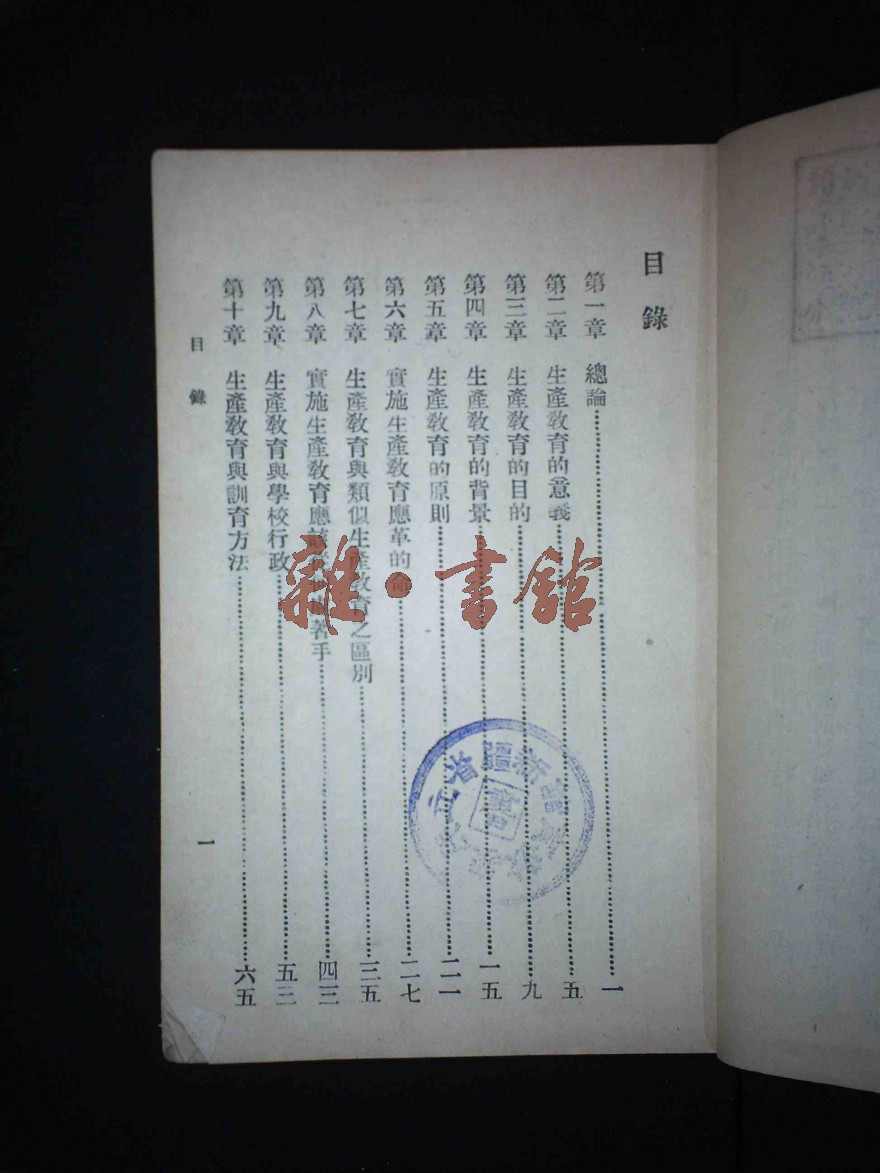 目錄
第一章 總論……一
第二章 生產教育的意義……五
第三章 生產教育的目的……九
第四章 生產教育的背景……一五
第五章 生產教育的原則……二一
第六章 實施生產教育應革的命……二七
第七章 生產教育與類似生產教育之區別……三五
第八章 實施生產教育應該 著手……四三
第九章 生產教育與學校行政……五三
第十章 生產教育與訓育方法……六五
目錄
一
雜·書館
新疆省立